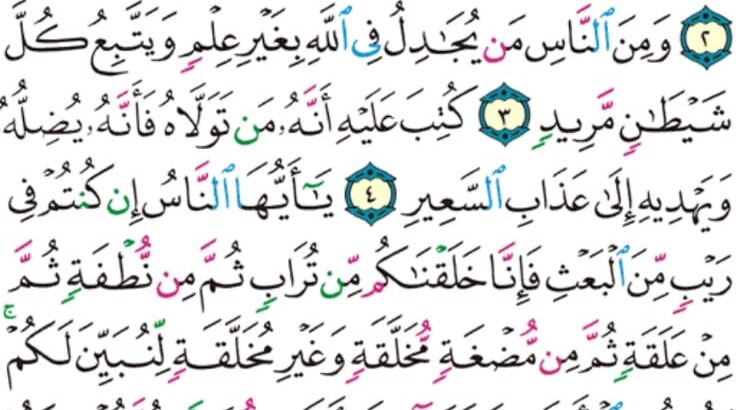 ٢ وَمِنَ ٱلنَّاسِ مَن يُجَٰدِلُ فِى ٱللَّهِ بِغَيْرِ عِلْمٍ وَيَتَّبِعُ كُلَّ
شَيْطَٰنٍ مَّرِيدٍ ٣ كُتِبَ عَلَيْهِ أَنَّهُۥ مَن تَوَلَّاهُ فَأَنَّهُۥ يُضِلُّهُۥ
وَيَهْدِيهِ إِلَىٰ عَذَابِ ٱلسَّعِيرِ ٤ يَٰٓأَيُّهَا ٱلنَّاسُ إِن كُنتُمْ فِى
رَيْبٍ مِّنَ ٱلْبَعْثِ فَإِنَّا خَلَقْنَٰكُم مِّن تُرَابٍ ثُمَّ مِن نُّطْفَةٍ ثُمَّ
مِنْ عَلَقَةٍ ثُمَّ مِن مُّضْغَةٍ مُّخَلَّقَةٍ وَغَيْرِ مُخَلَّقَةٍ لِّنُبَيِّنَ لَكُمْ ۚ